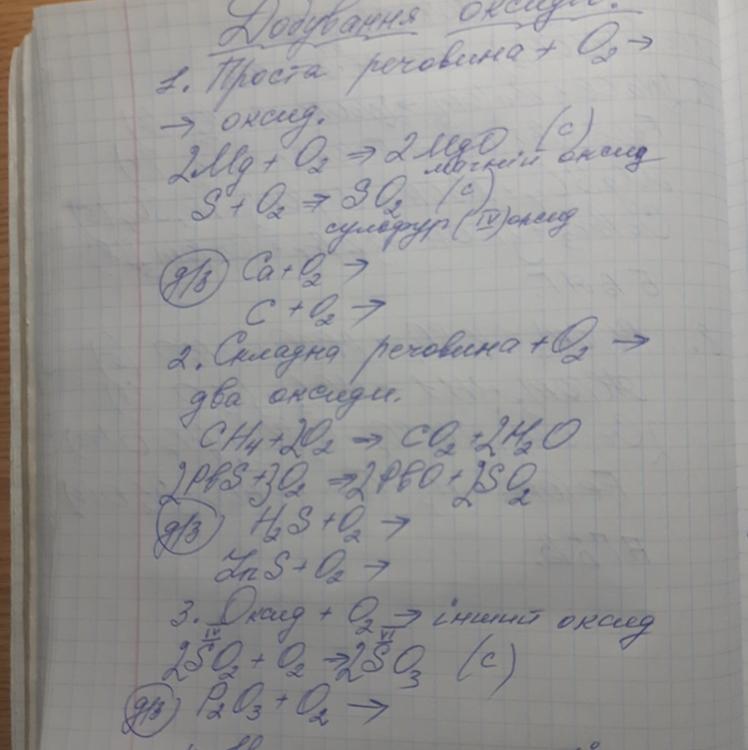 Добування оксидів.
1. Проста речовина + O₂ →
→ оксид.
2Mg + O₂ → 2MgO (с)
магній оксид
S + O₂ → SO₂ (с)
сульфур (IV) оксид
д/з Ca + O₂ →
C + O₂ →
2. Складна речовина + O₂ →
два оксиди.
CH₄ + 2O₂ → CO₂ + 2H₂O
2PbS + 3O₂ → 2PbO + 2SO₂
д/з H₂S + O₂ →
ZnS + O₂ →
3. Оксид + O₂ → інший оксид
IV VI
2SO₂ + O₂ → 2SO₃ (с)
д/з P₂O₃ + O₂ →